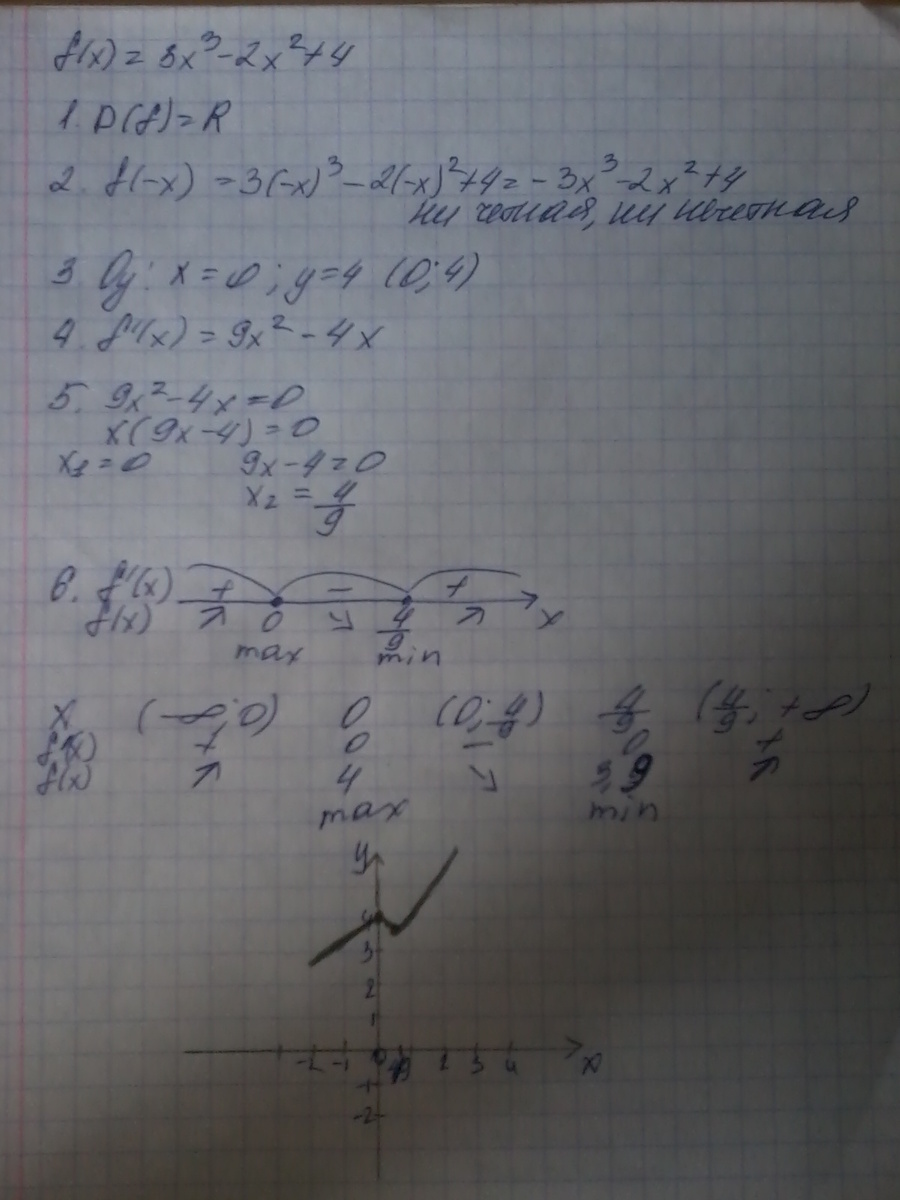 f(x) = 3x³-2x²+4
1. D(f)=R
2. f(-x) = 3(-x)³-2(-x)²+4=-3x³-2x²+4
ни четная, ни нечетная
3. Oy: x=0; y=4 (0;4)
4. f'(x) = 9x²-4x
5. 9x²-4x=0
x(9x-4)=0
x₁=0 9x-4=0
x₂ = 4/9
6. f'(x) + - +
f(x) ↗ 0 ↘ 4/9 ↗ x
max min
x (-∞;0) 0 (0;4/9) 4/9 (4/9;+∞)
f'(x) + 0 - 0 +
f(x) ↗ 4 ↘ 3,9 ↗
max min
y
4
3
2
1
-2 -1 0 4/9 2 3 4 x
-1
-2